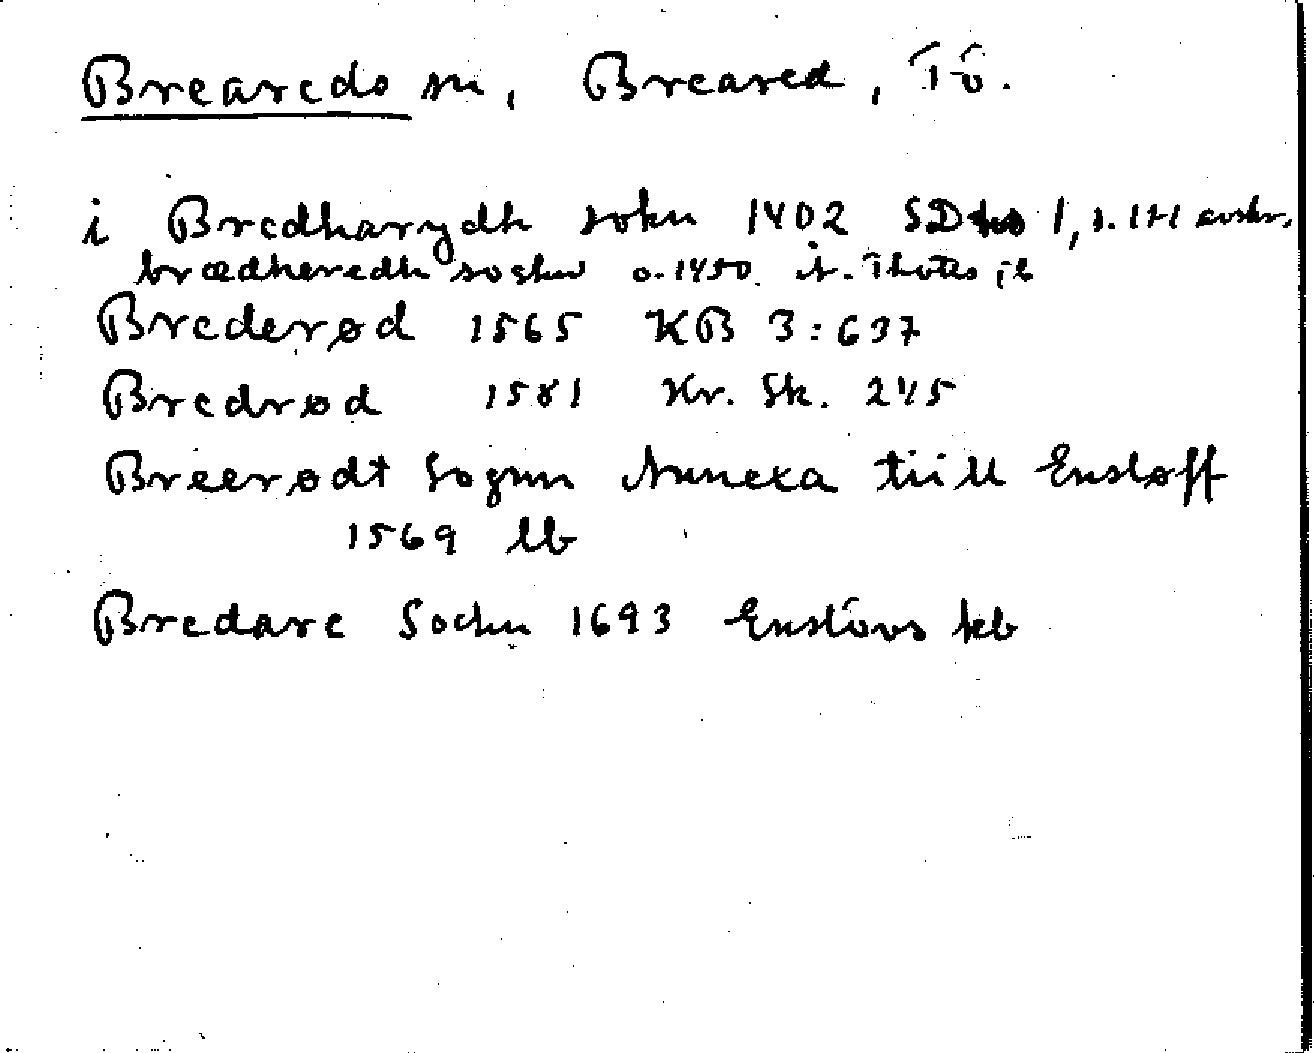 Breareds sn, Breared, Tö.
i Bredharydh sokn 1402 SD 1, s. 141 avskr.
brædheredh soghn o. 1450
Brederød 1565 KB 3:637
Bredrød 1581 Kr. Sk. 245
Breerødt Sognn Annexa tiill Ensløff
1569 lb
Bredare Sochn 1693 Enslövs kb